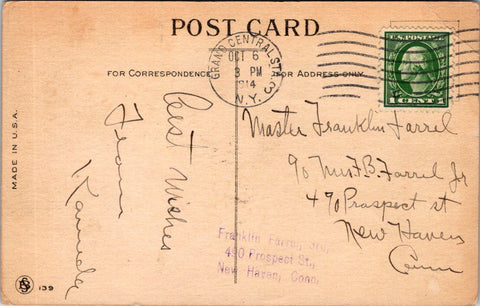 POST CARD
FOR CORRESPONDENCE
FOR ADDRESS ONLY
GRAND CENTRAL STA.
OCT 6
3 PM
1914
N.Y.
U.S. POSTAGE
1 CENT 1
Best Wishes
From
Master Franklin Farrel
% Mrs F. B. Farrel Jr
470 Prospect st
New Haven
Conn
Franklin Farrel, 3rd,
490 Prospect St.,
New Haven, Conn.
MADE IN U.S.A.
139